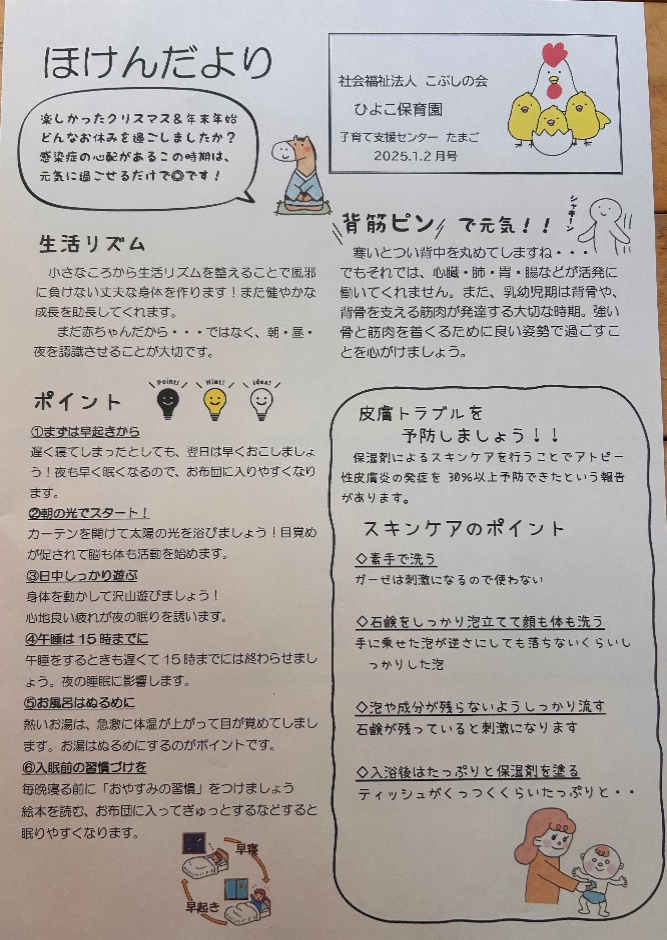 ほけんだより
社会福祉法人 こぶしの会
ひよこ保育園
子育て支援センター たまご
2025.1.2 月号
楽しかったクリスマス&年末年始
どんなお休みを過ごしましたか？
感染症の心配があるこの時期は、
元気に過ごせるだけで◎です！
生活リズム
小さなころから生活リズムを整えることで風邪
に負けない丈夫な身体を作ります！また健やかな
成長を助長してくれます。
まだ赤ちゃんだから・・・ではなく、朝・昼・
夜を認識させることが大切です。
背筋ピン で元気！！
シャキーン
寒いとつい背中を丸めてしますね・・・
でもそれでは、心臓・肺・胃・腸などが活発に
働いてくれません。また、乳幼児期は背骨や、
背骨を支える筋肉が発達する大切な時期。強い
骨と筋肉を着くるために良い姿勢で過ごすこ
とを心がけましょう。
ポイント
Point!
Hint!
Idea!
①まずは早起きから
遅く寝てしまったとしても、翌日は早くおこしましょ
う！夜も早く眠くなるので、お布団に入りやすくなり
ます。
②朝の光でスタート！
カーテンを開けて太陽の光を浴びましょう！目覚め
が促されて脳も体も活動を始めます。
③日中しっかり遊ぶ
身体を動かして沢山遊びましょう！
心地良い疲れが夜の眠りを誘います。
④午睡は 15 時までに
午睡をするときも遅くて 15 時までには終わらせまし
ょう。夜の睡眠に影響します。
⑤お風呂はぬるめに
熱いお湯は、急激に体温が上がって目が覚めてしまし
ます。お湯はぬるめにするのがポイントです。
⑥入眠前の習慣づけを
毎晩寝る前に「おやすみの習慣」をつけましょう
絵本を読む、お布団に入ってぎゅっとするなどすると
眠りやすくなります。
早寝
早起き
皮膚トラブルを
予防しましょう！！
保湿剤によるスキンケアを行うことでアトピー
性皮膚炎の発症を 30%以上予防できたという報告
があります。
スキンケアのポイント
◇素手で洗う
ガーゼは刺激になるので使わない
◇石鹸をしっかり泡立てて顔も体も洗う
手に乗せた泡が逆さにしても落ちないくらいし
っかりした泡
◇泡や成分が残らないようしっかり流す
石鹸が残っていると刺激になります
◇入浴後はたっぷりと保湿剤を塗る
ティッシュがくっつくくらいたっぷりと・・